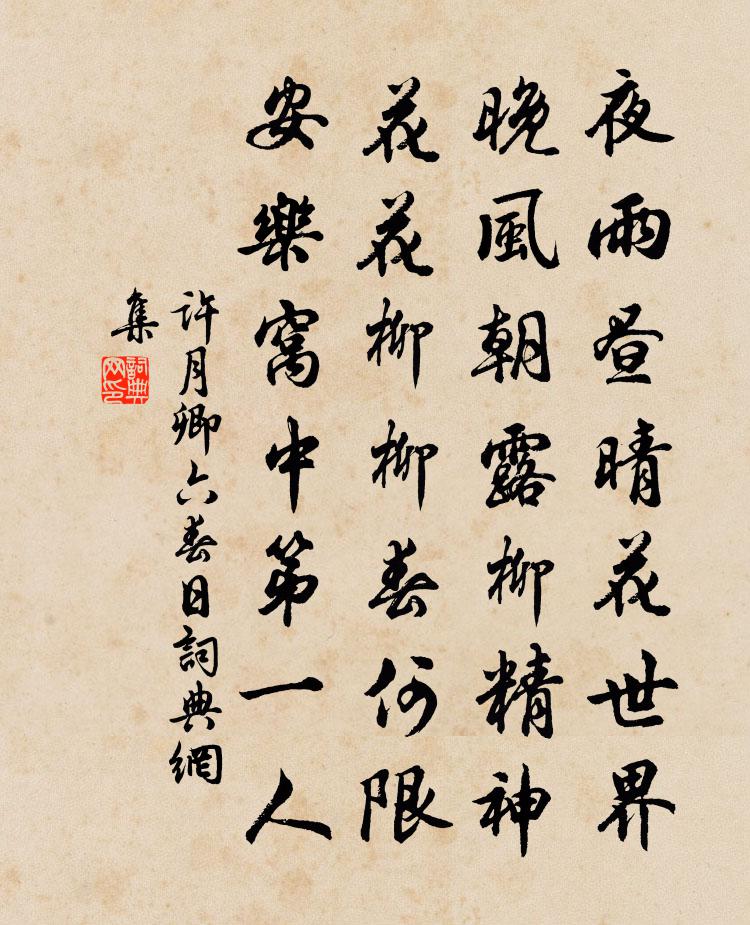 夜雨昼晴花世界
晚風朝露柳精神
花花柳柳春何限
安樂窩中第一人
許月卿六春日詞典網
集
詞典
网印